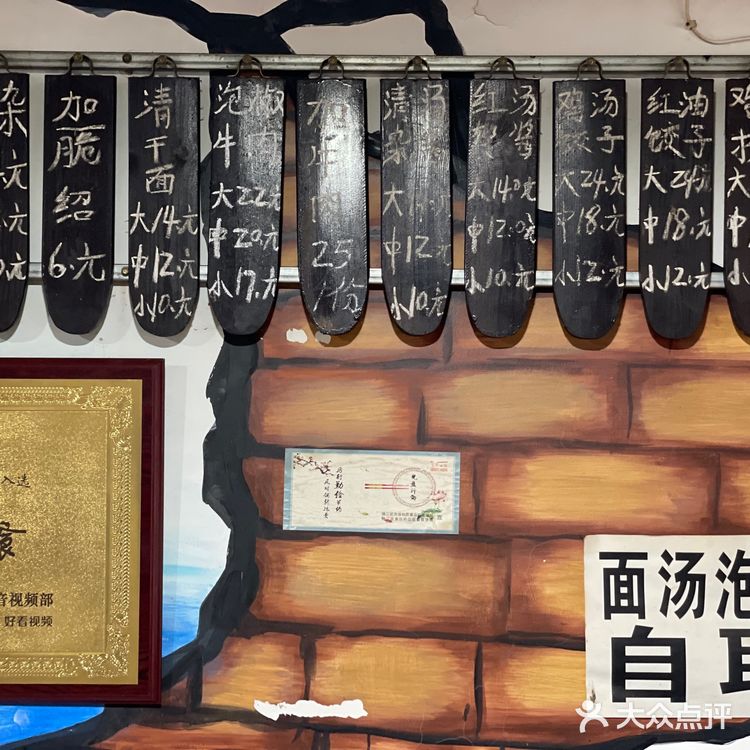 杂
加脆绍
6.元
清干面
大14.元
中12.元
小10.元
泡椒牛肉
大22元
中20.元
小17.元
加牛肉
25
/份
清汤杂
中12元
小10.元
红汤
大14.0元
中12.0元
小10.元
鸡汤饺子
大24.元
中18.元
小12.元
红油饺子
大24.元
中18.元
小12.元
鸡
大
中
小
入选
音视频部
好看视频
厉行勤俭节约
反对铺张浪费
光盘行动
面汤泡
自
大众点评